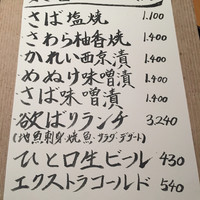 さば塩焼 1.100
さわら柚香焼 1.400
かれい西京漬 1.400
めぬけ味噌漬 1.400
さば味噌漬 1.400
欲ばりランチ 3,240
(地魚刺身・焼魚・サラダ・デザート)
ひと口生ビール 430
エクストラコールド 540